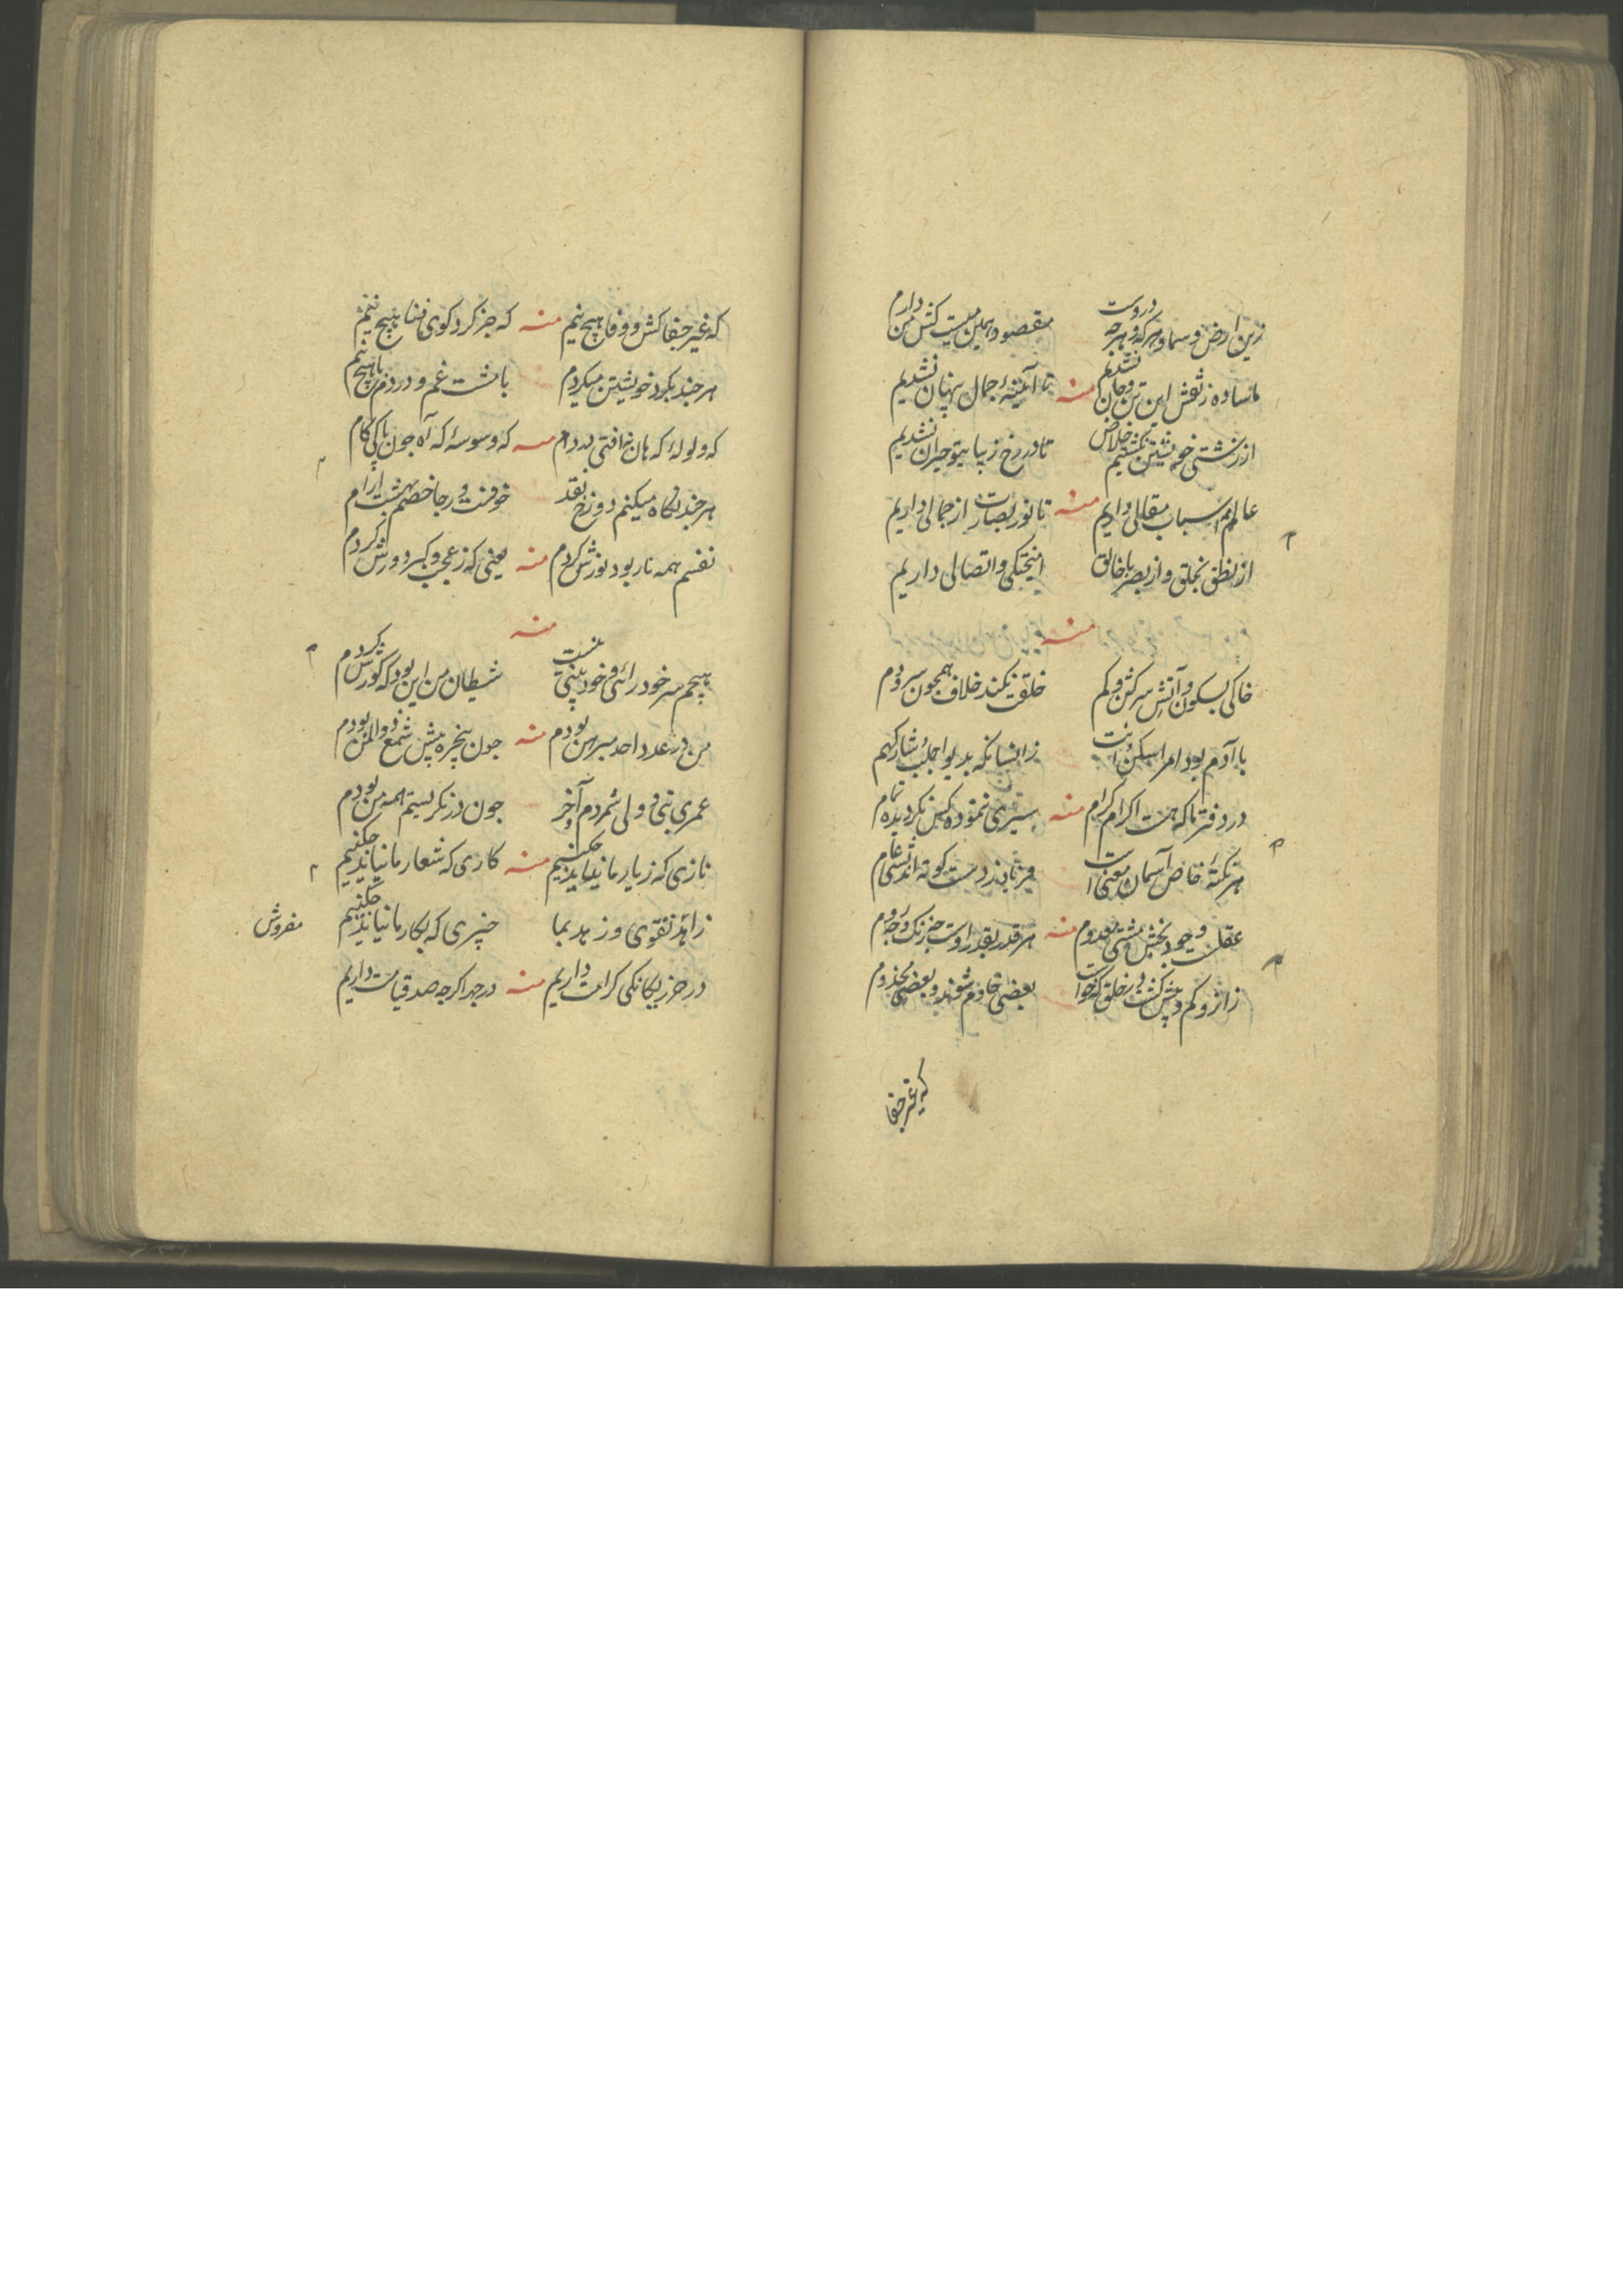 زین ارض و سما و هرکه و هرچه دروست مقصود همین بیست کش من دارم
ما ساده ز نقش این تن و جان نشدیم منه تا آئینهٔ جمال پنهان نشدیم
از زشتی خویشتن نگشتیم خلاص تا در رخ زیبای تو حیران نشدیم
عالم اسباب مقالی داریم منه تا نور بصارت از جمالی داریم
از نطق بخلق و از بصر با خالق آمیختگی و اتصالی داریم
منه
خاکی بسکون و آتش سرکش و کم خلقت نکند خلاف همچون سر و دم
با آدم بود امر اسکن انت زانسانکه بدیو اجلب شارکهم
در دفتر ما که هست اکرام کرام منه سیری ننموده کس نکردیده تمام
هر نکتهٔ خاص آسمان معنی است دست کوته اندیشی عام
عقلست وجود بخش مشتی معدوم منه هر قدر بقدر اوست
زائر و کم و بیش گشت در خلق که خواست بعضی خادم شوند و بعضی مخدوم
که غیر جفا
که غیر جفا کش و وفا هیچ نیم منه که جز کرد کوی فنا هیچ نیم
هر چند بکرد خویشتن میکردم با مشت غم و دردم با هیچ نیم
که ولوله که هان نه افتی در دام منه که وسوسهٔ که آه چون پاکی کام
هر چند نگاه میکنم دوزخ نقد خوفست و رجا خصم بهشت آرام
نفسم همه نار بود نورش کردم منه یعنی که ز عجب و کبر دورش کردم
منه
هیچم سر خود رائی و خود بینی نیست شیطان من این بود که کورش کردم
من در عدد احد مبرهن بودم منه چون پنجره پیش شمع ذوالمن بودم
عمری نبی و ولی شمردم آخر چون در نکریستم همه من بودم
نازی که ز یار ما نیاید چکنیم منه کاری که شعار ما نیاید چکنیم
زاهد تقوی و زهد بما چیزی که بکار ما نیاید چکنیم
مفروش
در حزر یکانکی کرامت داریم منه در جهد اکرچه صد قیامت داریم